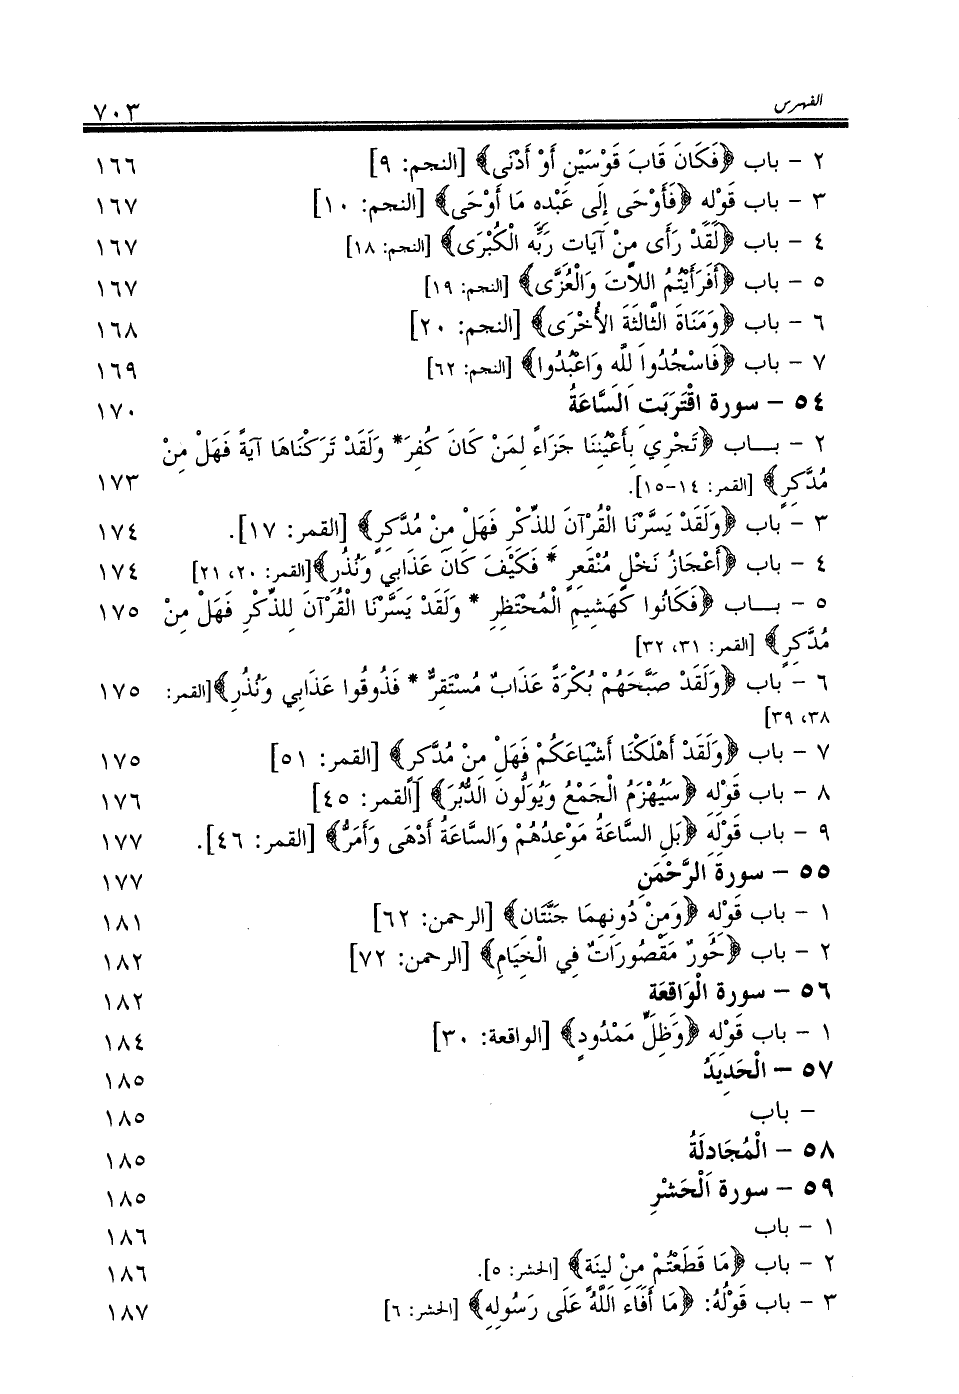 الفهرس ٧٠٣
٢ - باب ﴿فَكَانَ قَابَ قَوْسَيْنِ أَوْ أَدْنَى﴾ [النجم: ٩] ١٦٦
٣ - باب قَوْلِهِ ﴿فَأَوْحَى إِلَى عَبْدِهِ مَا أَوْحَى﴾ [النجم: ١٠] ١٦٧
٤ - باب ﴿لَقَدْ رَأَى مِنْ آيَاتِ رَبِّهِ الْكُبْرَى﴾ [النجم: ١٨] ١٦٧
٥ - باب ﴿أَفَرَأَيْتُمُ اللَّاتَ وَالْعُزَّى﴾ [النجم: ١٩] ١٦٧
٦ - باب ﴿وَمَنَاةَ الثَّالِثَةَ الأُخْرَى﴾ [النجم: ٢٠] ١٦٨
٧ - باب ﴿فَاسْجُدُوا لِلَّهِ وَاعْبُدُوا﴾ [النجم: ٦٢] ١٦٩
٥٤ - سورة اقْتَرَبَتِ السَّاعَةُ ١٧٠
٢ - بـــاب ﴿تَجْرِي بِأَعْيُنِنَا جَزَاءً لِمَنْ كَانَ كُفِرَ* وَلَقَدْ تَرَكْنَاهَا آيَةً فَهَلْ مِنْ
مُدَّكِرٍ﴾ [القمر: ١٤-١٥]. ١٧٣
٣ - باب ﴿وَلَقَدْ يَسَّرْنَا الْقُرْآنَ لِلذِّكْرِ فَهَلْ مِنْ مُدَّكِرٍ﴾ [القمر: ١٧]. ١٧٤
٤ - باب ﴿أَعْجَازُ نَخْلٍ مُنْقَعِرٍ * فَكَيْفَ كَانَ عَذَابِي وَنُذُرِ﴾[القمر: ٢٠، ٢١] ١٧٤
٥ - بـــاب ﴿فَكَانُوا كَهَشِيمِ الْمُحْتَظِرِ * وَلَقَدْ يَسَّرْنَا الْقُرْآنَ لِلذِّكْرِ فَهَلْ مِنْ ١٧٥
مُدَّكِرٍ﴾ [القمر: ٣١، ٣٢]
٦ - باب ﴿وَلَقَدْ صَبَّحَهُمْ بُكْرَةً عَذَابٌ مُسْتَقِرٌّ * فَذُوقُوا عَذَابِي وَنُذُرِ﴾[القمر: ١٧٥
٣٨، ٣٩]
٧ - باب ﴿وَلَقَدْ أَهْلَكْنَا أَشْيَاعَكُمْ فَهَلْ مِنْ مُدَّكِرٍ﴾ [القمر: ٥١] ١٧٥
٨ - باب قَوْلِهِ ﴿سَيُهْزَمُ الْجَمْعُ وَيُوَلُّونَ الدُّبُرَ﴾ [القمر: ٤٥] ١٧٦
٩ - باب قَوْلِهِ ﴿بَلِ السَّاعَةُ مَوْعِدُهُمْ وَالسَّاعَةُ أَدْهَى وَأَمَرُّ﴾ [القمر: ٤٦]. ١٧٧
٥٥ - سورة الرَّحْمَنِ ١٧٧
١ - باب قَوْلِهِ ﴿وَمِنْ دُونِهِمَا جَنَّتَانِ﴾ [الرحمن: ٦٢] ١٨١
٢ - باب ﴿حُورٌ مَقْصُورَاتٌ فِي الْخِيَامِ﴾ [الرحمن: ٧٢] ١٨٢
٥٦ - سورة الْوَاقِعَة ١٨٢
١ - باب قَوْلِهِ ﴿وَظِلٍّ مَمْدُودٍ﴾ [الواقعة: ٣٠] ١٨٤
٥٧ - الْحَدِيدُ ١٨٥
- باب ١٨٥
٥٨ - الْمُجَادِلَةُ ١٨٥
٥٩ - سورة الْحَشْرِ ١٨٥
١ - باب ١٨٦
٢ - باب ﴿مَا قَطَعْتُمْ مِنْ لِينَةٍ﴾ [الحشر: ٥]. ١٨٦
٣ - باب قَوْلُهُ: ﴿مَا أَفَاءَ اللَّهُ عَلَى رَسُولِهِ﴾ [الحشر: ٦] ١٨٧